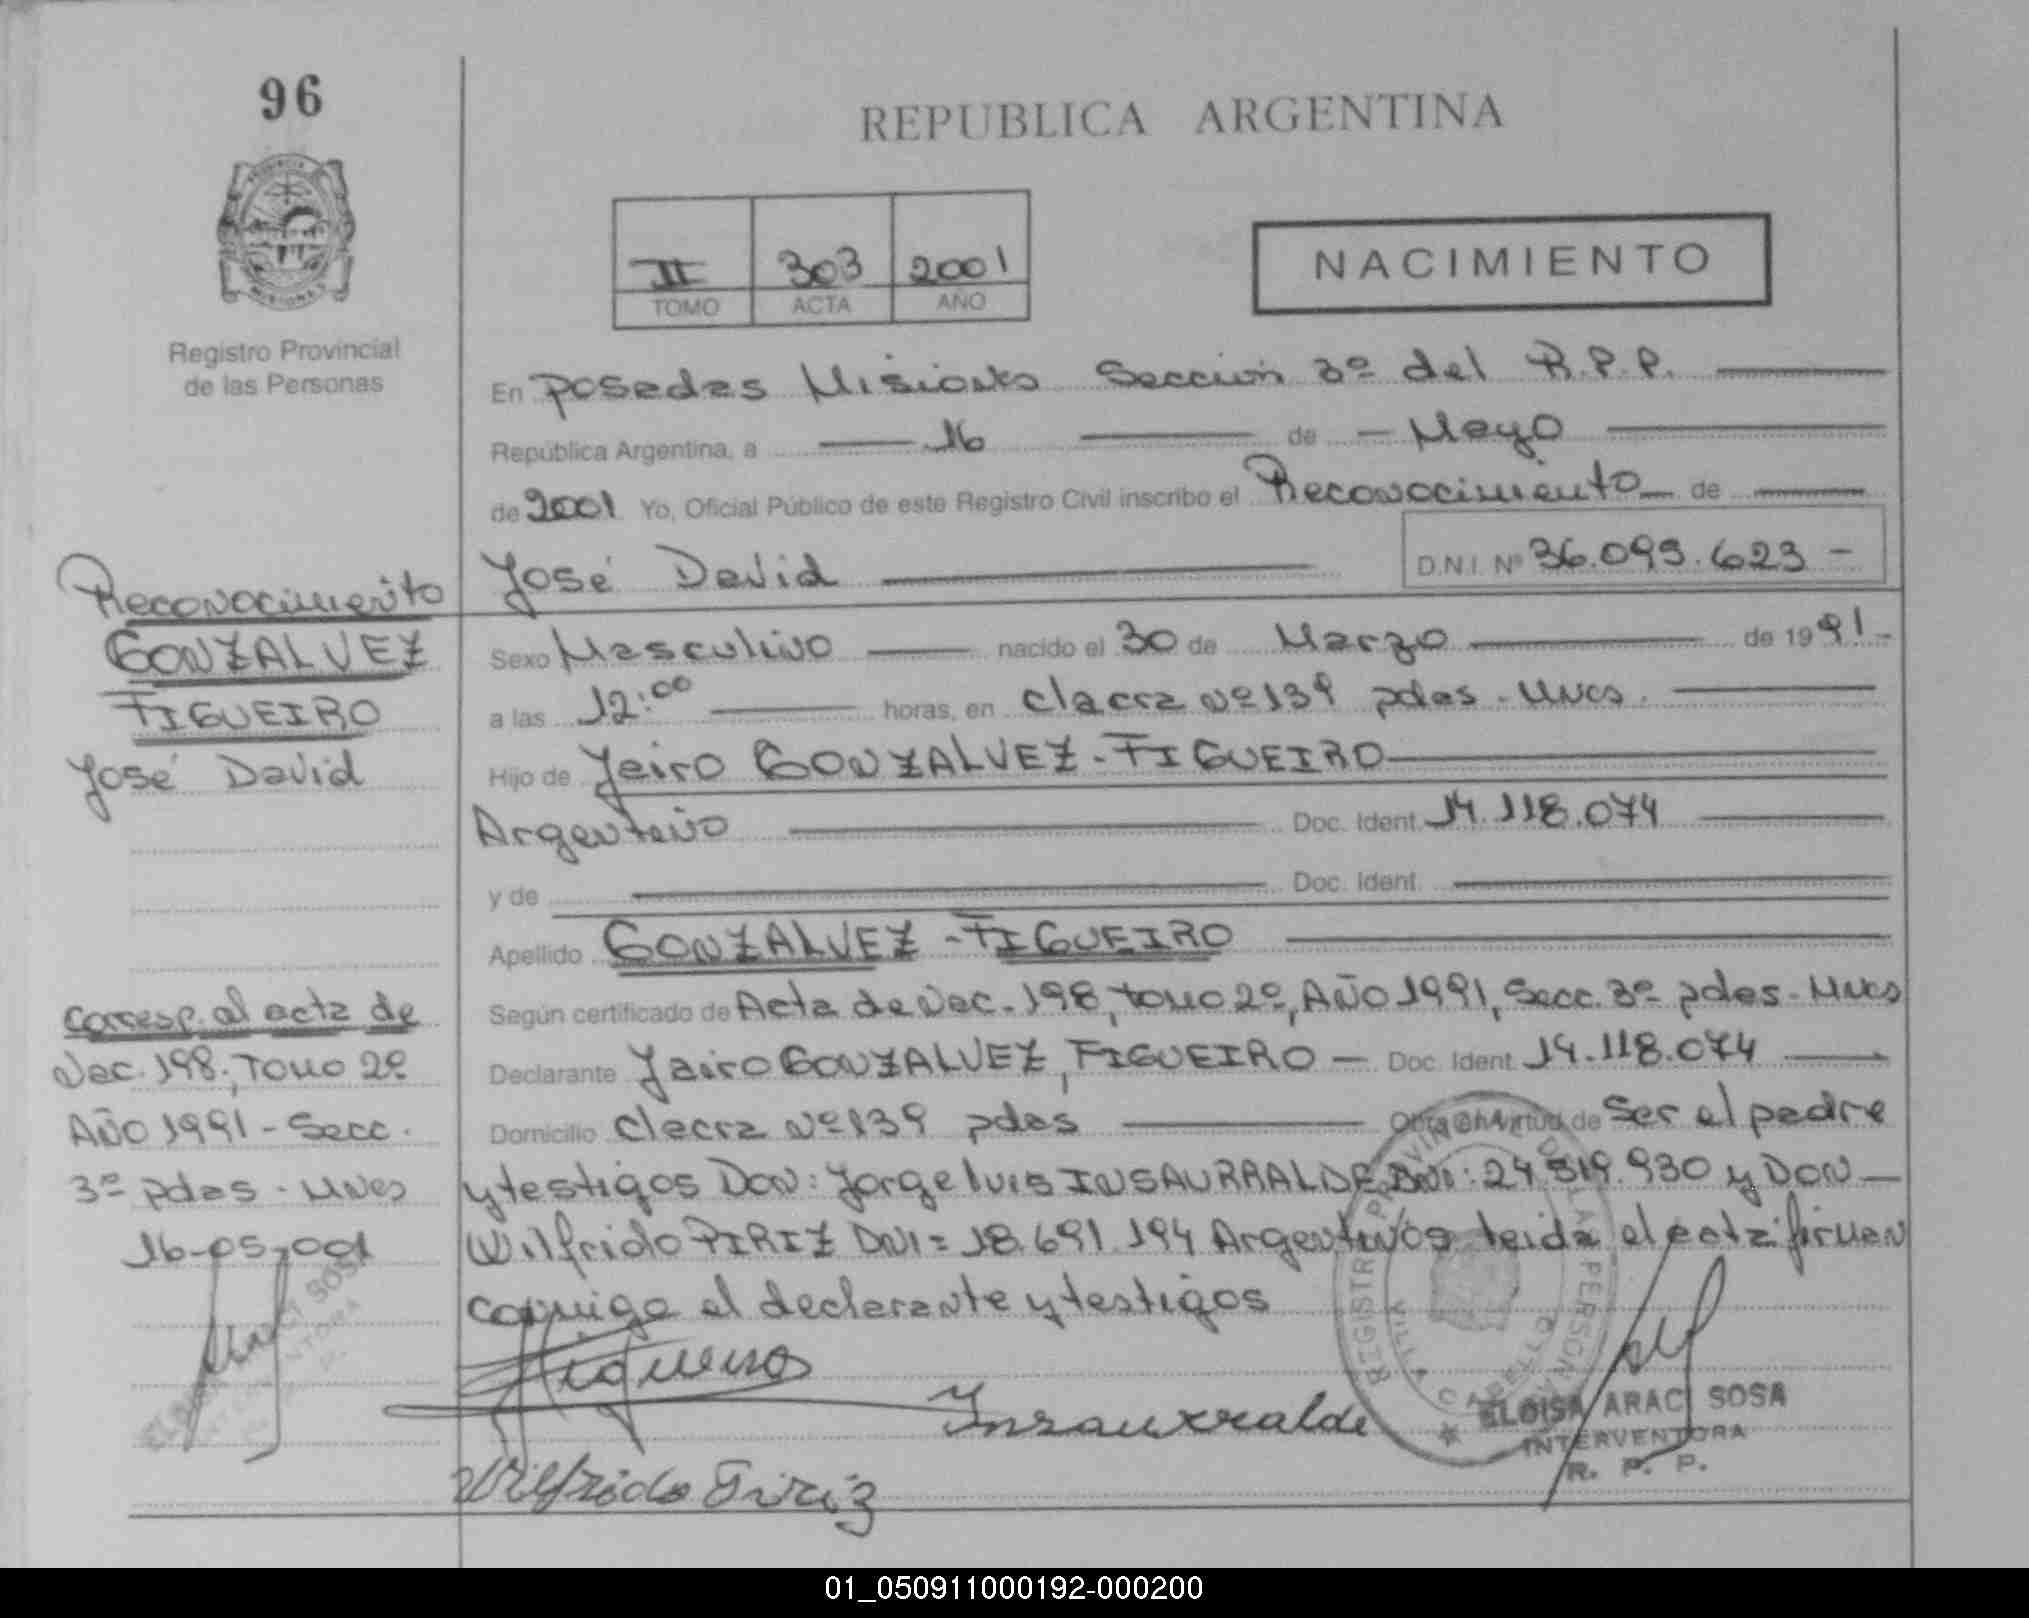 96
REPUBLICA ARGENTINA
II 303 2001
TOMO ACTA AÑO
NACIMIENTO
Registro Provincial
de las Personas
En Posadas Misiones Sección 3º del R.P.P.
República Argentina, a 16 de Mayo
de 2001 Yo, Oficial Público de este Registro Civil inscribo el Reconocimiento de
José David D.N.I. Nº 36.095.623 -
Reconocimiento
GONZALVEZ
FIGUEIRO
José David
Sexo Masculino nacido el 30 de Marzo de 1991 -
a las 12:00 horas, en Chacra Nº 139 pdas - Mnes.
Hijo de Jairo GONZALVEZ - FIGUEIRO
Argentino Doc. Ident. 14.118.074
y de Doc. Ident.
Apellido GONZALVEZ - FIGUEIRO
Según certificado de Acta de Nac. 198, tomo 2º, Año 1991, Secc. 3ª pdas - Mnes
Declarante Jairo GONZALVEZ, FIGUEIRO - Doc. Ident. 14.118.074
Domicilio Chacra Nº 139 pdas Obra en virtud de Ser el padre
y testigos Don: Jorge luis INSAURRALDE DNI: 24.519.930 y DON
Wilfrido PIRIZ DNI = 18.691.194 Argentinos leida el acta firman
conmigo el declarante y testigos
Corresp. al acta de
Nac. 198, Tomo 2º
Año 1991 - Secc.
3ª pdas - Mnes
16-05-001
Figueiro
Insaurralde
Wilfrido Piriz
ELOISA ARACI SOSA
INTERVENTORA
R. P. P.
01_050911000192-000200